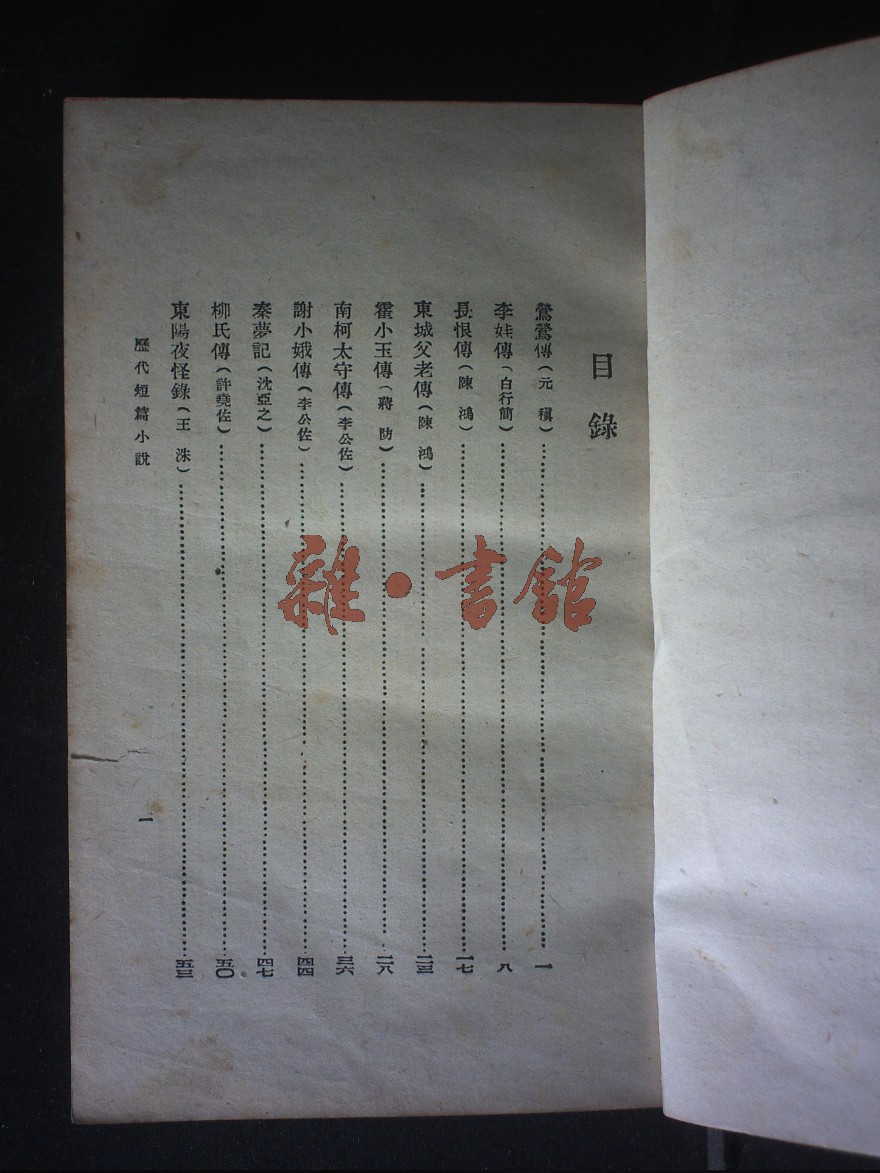 目錄
鶯鶯傳（元 稹）……一
李娃傳（白行簡）……八
長恨傳（陳 鴻）……一七
東城父老傳（陳 鴻）……二三
霍小玉傳（蔣 防）……二八
南柯太守傳（李公佐）……三六
謝小娥傳（李公佐）……四四
秦夢記（沈亞之）……四七
柳氏傳（許堯佐）……五〇
東陽夜怪錄（王 洙）……五三
歷代短篇小說
一
雜·書館